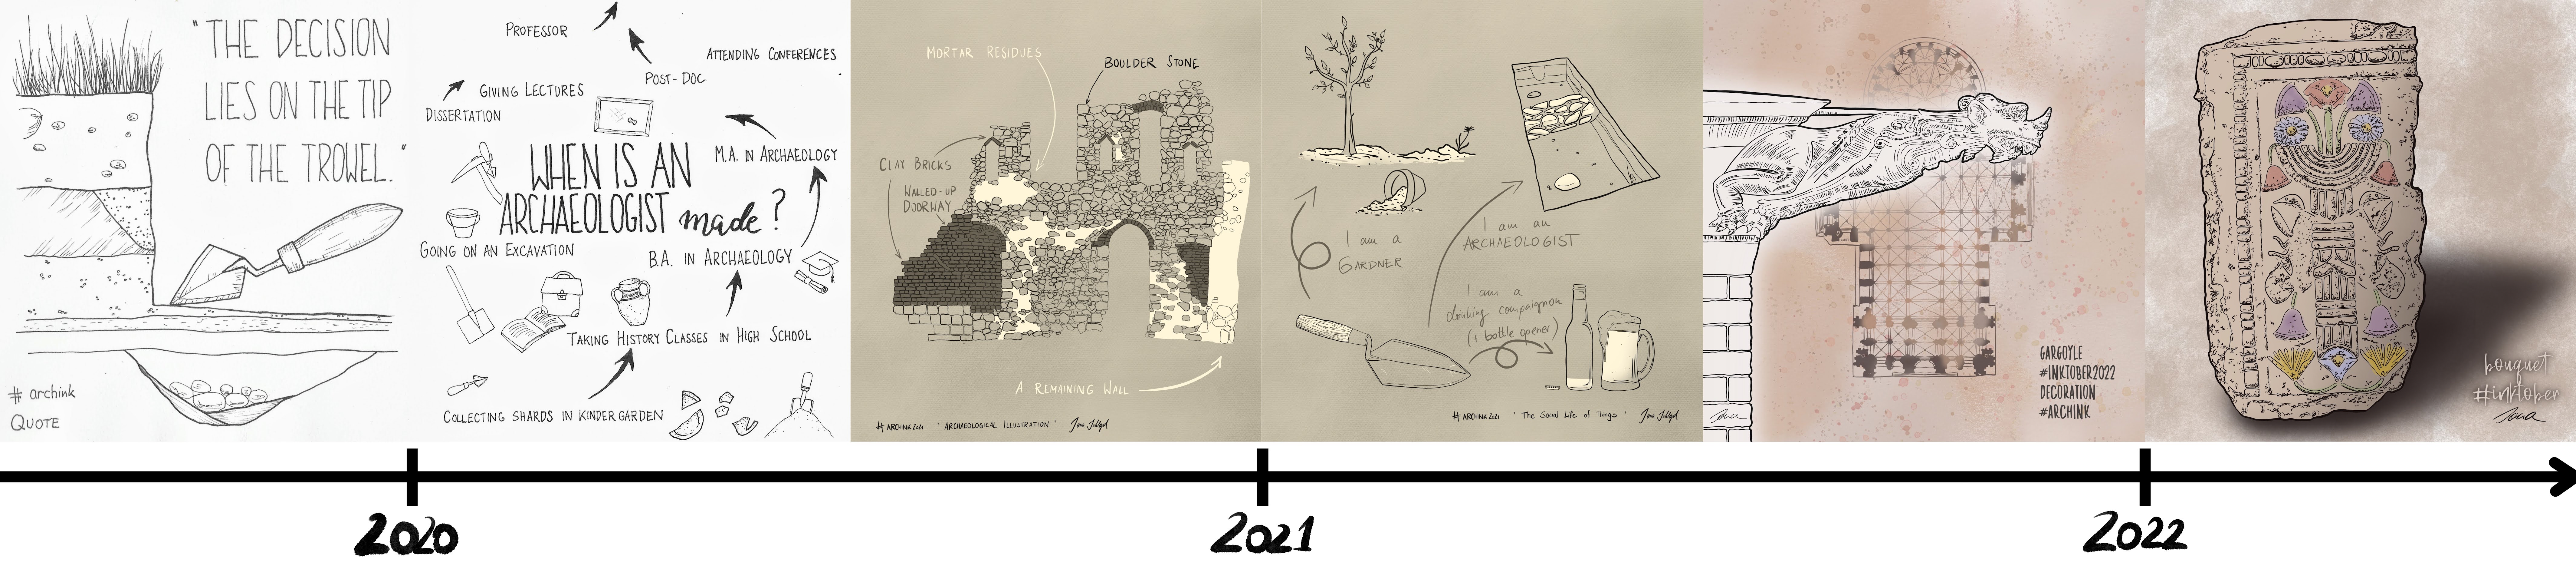 "THE DECISION
LIES ON THE TIP
OF THE TROWEL."
# archink
QUOTE
PROFESSOR
ATTENDING CONFERENCES
POST-DOC
GIVING LECTURES
DISSERTATION
M.A. IN ARCHAEOLOGY
WHEN IS AN
ARCHAEOLOGIST made?
GOING ON AN EXCAVATION
B.A. IN ARCHAEOLOGY
TAKING HISTORY CLASSES IN HIGH SCHOOL
COLLECTING SHARDS IN KINDERGARDEN
MORTAR RESIDUES
BOULDER STONE
CLAY BRICKS
WALLED-UP
DOORWAY
A REMAINING WALL
# ARCHINK2021 'ARCHAEOLOGICAL ILLUSTRATION'
I am a
GARDNER
I am an
ARCHAEOLOGIST
I am a
drinking compaignon
(+ bottle opener)
# ARCHINK2021 'The Social Life of Things'
Jona
GARGOYLE
#INKTOBER2022
DECORATION
#ARCHINK
bouquet
#inktober
Jona
2020
2021
2022